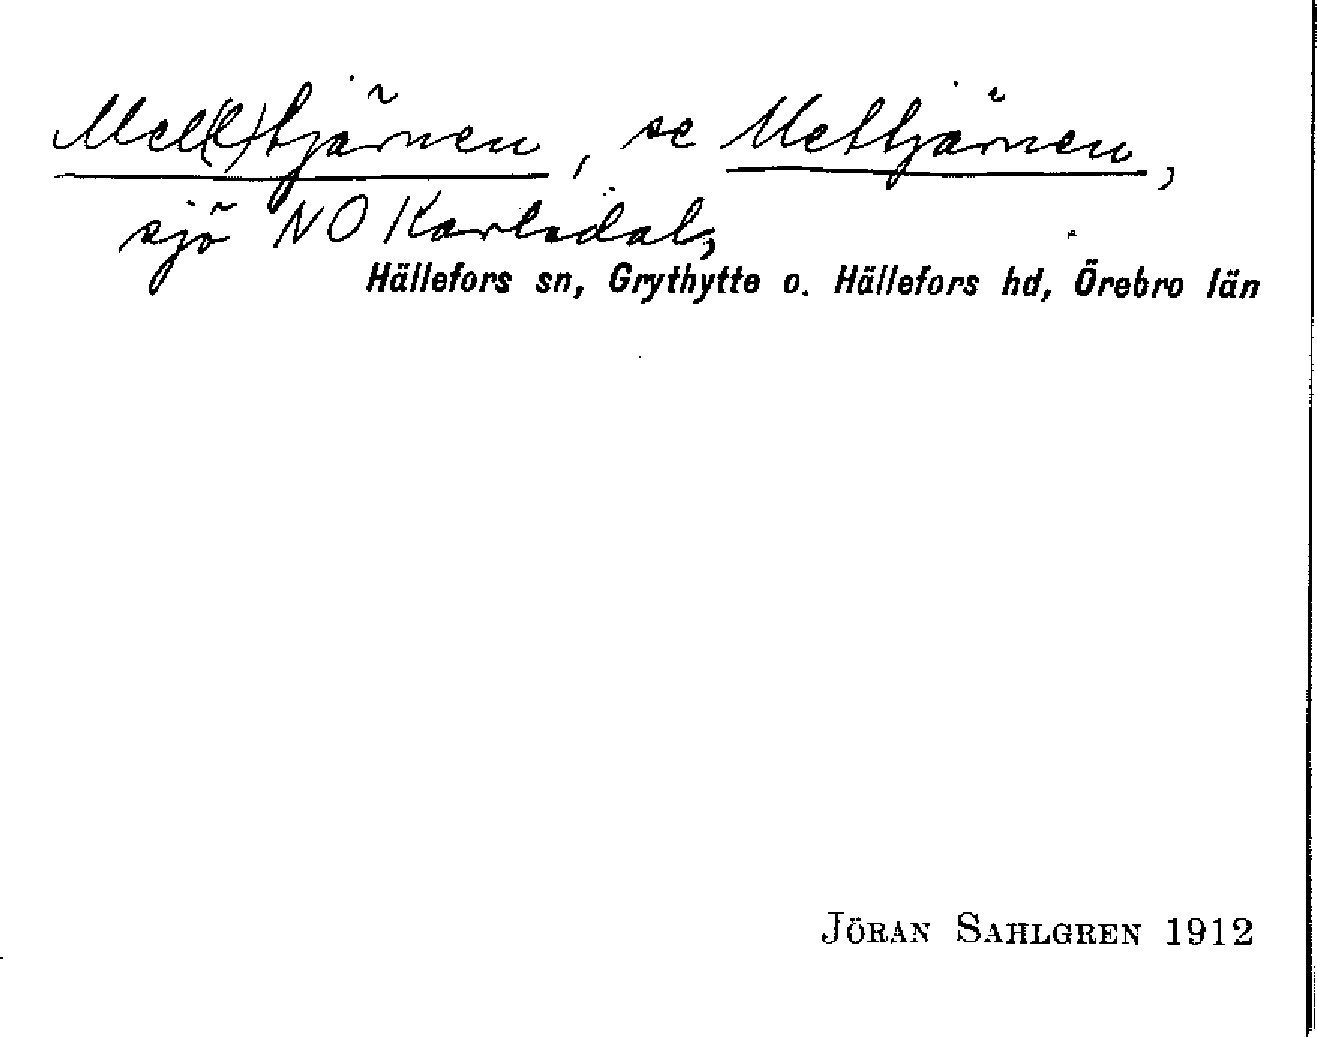 Mel(l)tjärnen, se Mettjärnen,
sjö NO Karlsdal,
Hällefors sn, Grythytte o. Hällefors hd, Örebro län
JÖRAN SAHLGREN 1912